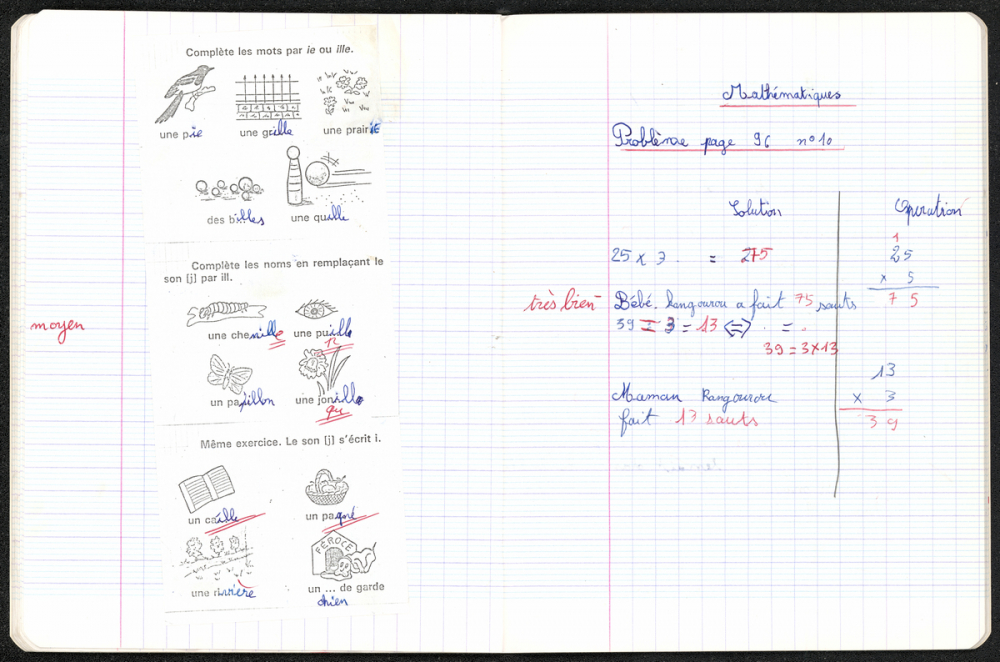 Complète les mots par ie ou ille.
une pie une grille une prairie
des billes une quille
Complète les noms en remplaçant le
son [j] par ill.
une chenille une puille
un papillon une jonille
qu
moyen
Même exercice. Le son [j] s'écrit i.
FÉROCE
un caille un pagné
une rivière un ... de garde
chien
Mathématiques
Problème page 96 n°10
Solution Opération
1
25 x 3 = 275 25
x 5
très bien Bébé kangourou a fait 75 sauts 75
39 = 3 = 13 <=> . = .
39 = 3 x 13
13
Maman Kangourou x 3
fait 13 sauts 39